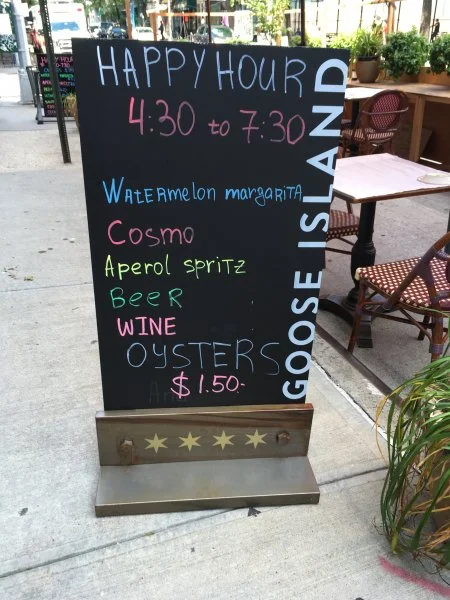 HAPPY HOUR
4:30 to 7:30
WATERmelon margaRITA
Cosmo
Aperol spritz
BeeR
WINE
OYSTERS
$1.50-
GOOSE ISLAND